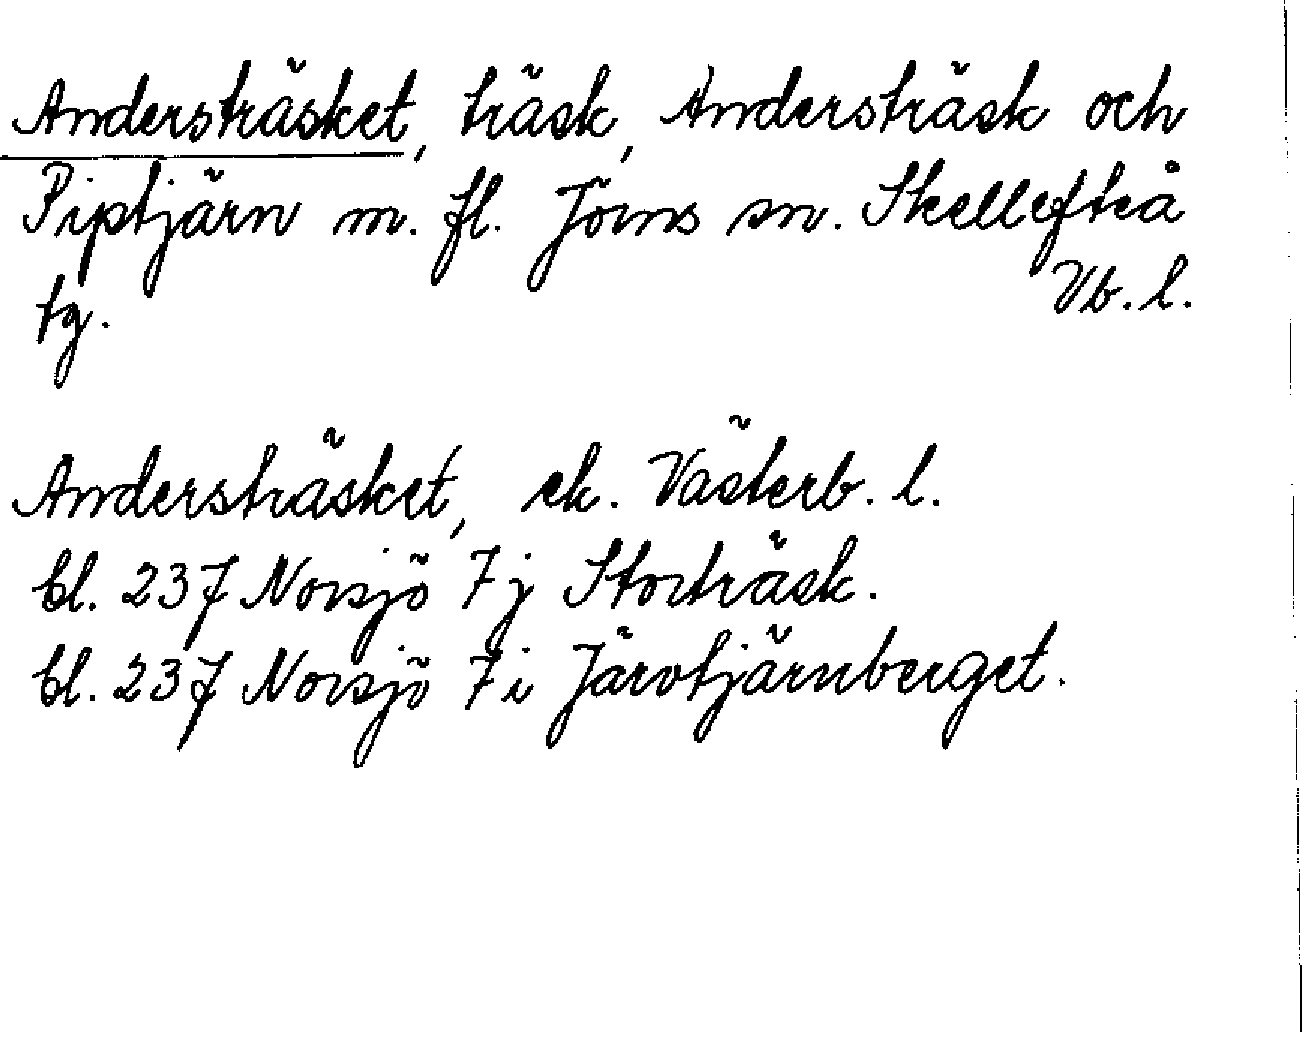 Andersträsket, träsk, Andersträsk och
Piptjärn m. fl. Jörns sn. Skellefteå
tg. Vb. l.
Andersträsket, ek. Västerb. l.
bl. 237 Norsjö 7j Storträsk.
bl. 237 Norsjö 7i Järvtjärnberget.